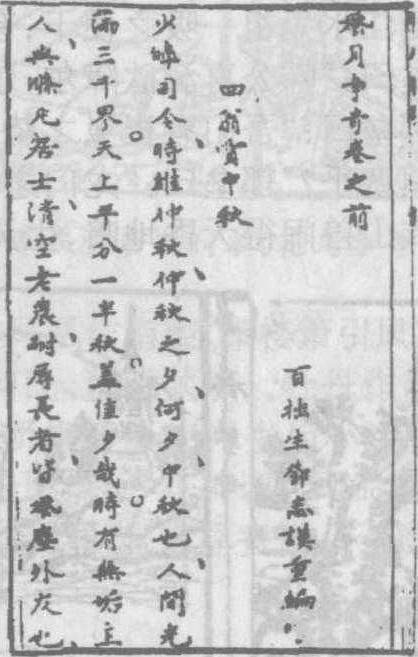 風月爭奇卷之前
百拙生鄧志謨重編
四翁賞中秋
少皥司令時維仲秋仲秋之夕何夕中秋也人間光
滿三千界天上平分一半秋蓋佳夕哉時有無垢主
人與滌凡居士清空老農耐辱長者皆風塵外友也